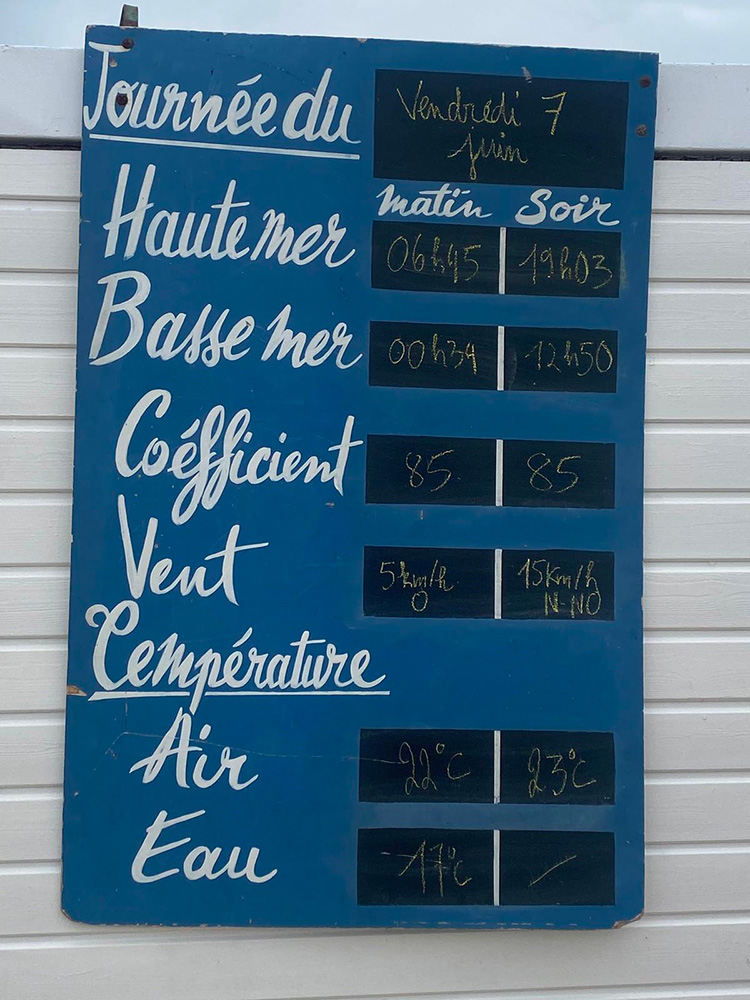 Journée du Vendredi 7
juin
matin Soir
Haute mer 06h45 19h03
Basse mer 00h34 12h50
Coéfficient 85 85
Vent 5km/h 15km/h
O N-NO
Température
Air 22°C 23°C
Eau 17°C -